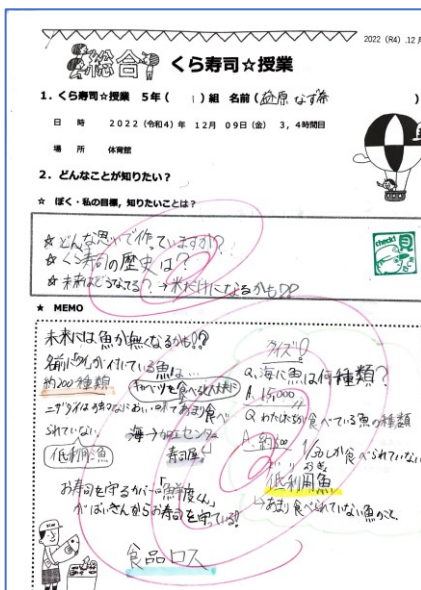 2022 (R4) .12月
総合 くら寿司☆授業
1. くら寿司☆授業 5年 ( 1 )組 名前 ( なず奈 )
日 時 2022 (令和4) 年 12月 09日 (金) 3, 4時間目
場 所 体育館
2. どんなことが知りたい?
☆ ぼく・私の目標, 知りたいことは?
☆ どんな思いで作っていますか?
☆ くら寿司の歴史は?
☆ 未来はどうなってる? → 米だけになるかも??
check! 見
★ MEMO
未来には魚が無くなるかも!?
名前に「タイ」が付いている魚は…
約200種類
キャベツを食べる
ニザダイは
られていない
低利用魚
海→加工センター
寿司屋
お寿司を守るカバー「鮮度くん」
がばいきんからお寿司を守っている!!
食品ロス
クイズ?
Q, 海に魚は何種類?
A. 15,000
Q わたしたちが食べている魚の種類
A. 約500 1/30しか食べられていない
低利用魚
↳あまり食べられていない魚のこと